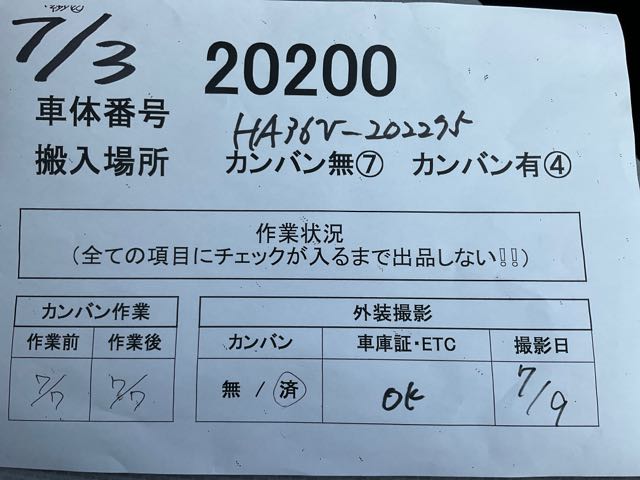 7/3
20200
車体番号 HA36V-202295
搬入場所 カンバン無⑦ カンバン有④
作業状況
(全ての項目にチェックが入るまで出品しない!!)
カンバン作業 外装撮影
作業前 作業後 カンバン 車庫証・ETC 撮影日
7/7 7/7 無 / 済 OK 7/9